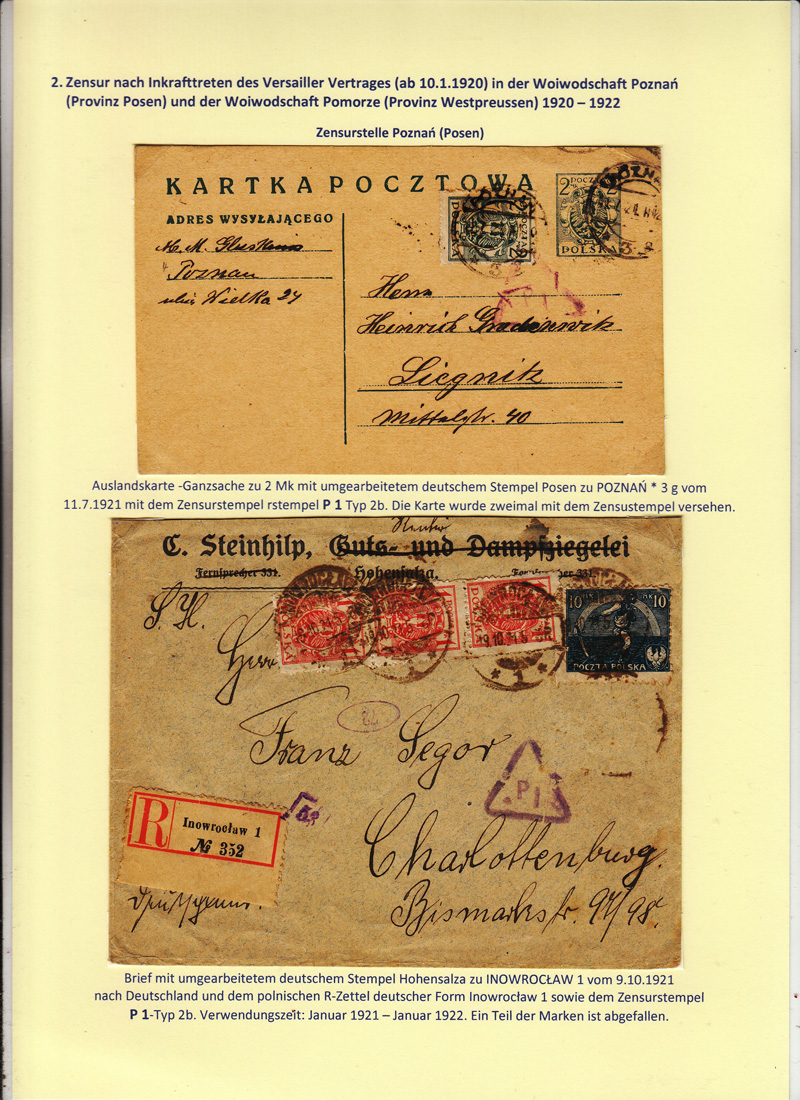 2. Zensur nach Inkrafttreten des Versailler Vertrages (ab 10.1.1920) in der Woiwodschaft Poznań
(Provinz Posen) und der Woiwodschaft Pomorze (Provinz Westpreussen) 1920 – 1922
Zensurstelle Poznań (Posen)
KARTKA POCZTOWA
ADRES WYSYŁAJĄCEGO
M. M.
Poznau
Wielka 24
2 POCZTA
POLSKA
P 1
Herrn
Heinrich
Liegnitz
Mittelstr. 40
Auslandskarte -Ganzsache zu 2 Mk mit umgearbeitetem deutschem Stempel Posen zu POZNAŃ * 3 g vom
11.7.1921 mit dem Zensurstempel rstempel P 1 Typ 2b. Die Karte wurde zweimal mit dem Zensustempel versehen.
C. Steinhilp, Guts- und Dampfziegelei
Fernsprecher 331. Hohensalza. Fernsprecher 331.
S. H.
Herrn
10 10
POCZTA POLSKA
Franz Segor
P 1
R
Inowrocław 1
№ 352
Charlottenburg.
Bismarkstr. 97/98.
Brief mit umgearbeitetem deutschem Stempel Hohensalza zu INOWROCŁAW 1 vom 9.10.1921
nach Deutschland und dem polnischen R-Zettel deutscher Form Inowrocław 1 sowie dem Zensurstempel
P 1-Typ 2b. Verwendungszeit: Januar 1921 – Januar 1922. Ein Teil der Marken ist abgefallen.